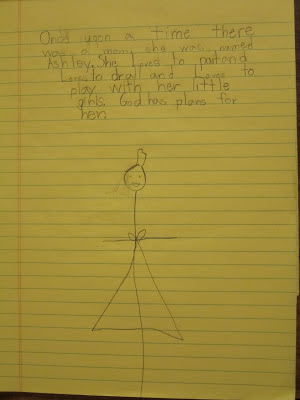 Once upon a time there
was a mom she was named
Ashley. She Loves to
Loves to drall and Loves to
play with her little
girls. God has plans for
her.